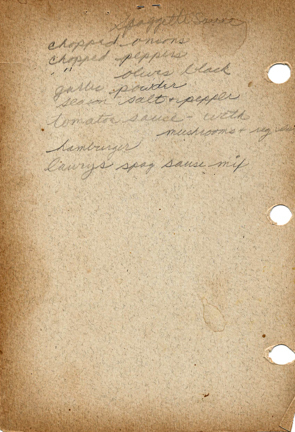 Spaggetti Sauce
chopped onions
chopped peppers
" " olives black
garlic powder
season salt + pepper
tomatoe sauce - with
mushrooms + reg
hamburger
lawrys spag sause mix